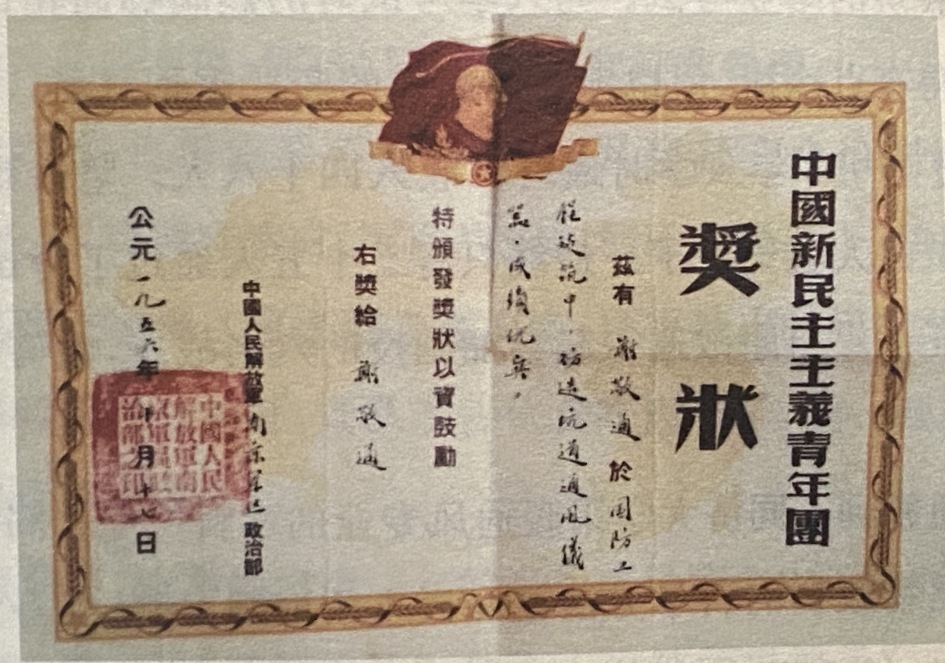 中國新民主主義青年團
獎狀
茲有 謝敬通 於國防工
程建筑中，仿造坑道通風儀
器，成績优異，
特頒發獎狀以資鼓勵
右獎給 謝敬通
中國人民解放軍南京軍区政治部
公元一九五六年 月十七日
中國人民
解放軍南
京軍區政
治部之印